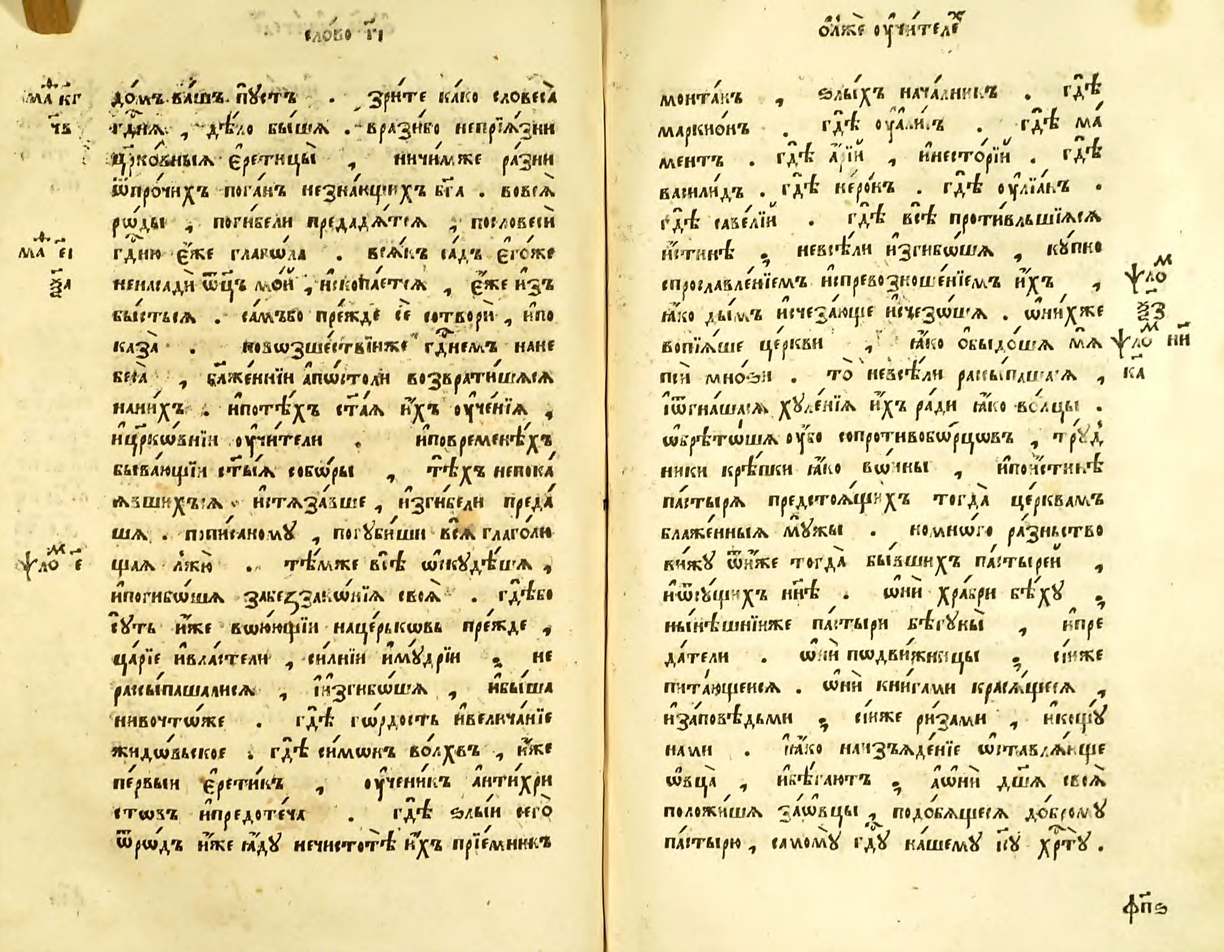 сло́во г҃і
ма ѳ кг
чв
до́мъ ва́шъ пу́стъ . зри́те ка́ко словеса̀
гдⷭ҇ня , дѣ́ло бы́шѧ . вразꙋ́бо непрїѧ́зни
цр҃ко́вныѧ є҆ретицы̀ , ничи́мже ра́зни
ѿпро́чихъ пога́нъ незна́ющихъ бг҃а . вовсѧ̀
рѡ́ды , поги́бели предадѧ́тсѧ , пословесѝ
ма ѳ е҃і
гдⷭ҇ню є҆́же глаго́ла . всѧ́къ са́дъ є҆го́же
ѯа
ненасадѝ ѻ҆ц҃ъ мо́й , и҆скопа́етсѧ , є҆́же и҆зъ
бы́стьсѧ . са́мъбо пре́жде сѐ сотворѝ , и҆по
каза̀ . повозше́ствїиже гдⷭ҇немъ нане
беса̀ , бл҃же́ннїи а҆пⷭ҇толи возврати́шасѧ
нани́хъ . и҆поте́хъ ст҃а́ѧ и҆́хъ ᲂу҆че́нїѧ ,
и҆цр҃ко́внїи ᲂу҆чи́тели . и҆повременѣ́хъ
быва́ющїи ст҃ы́ѧ собѡ́ры , тѣ́хъ непока́
ѧвшихъсѧ и҆стѧза́вше , и҆зги́бели преда́
шѧ . попи́саному , погуби́ши всѧ̀ глаго́лю
ѱло м е
щаѧ лжю̀ . тѣ́мже всѣ̀ ѡ҆скудѣ́шѧ ,
и҆поги́бѡшѧ забеззако́нїѧ своѧ̀ . гдѣ́бо
сꙋ́ть и҆̀же вою́ющїи наце́рьковь пре́жде ,
ца́рїе и҆вла́стели , си́лнїи и҆му́дрїи ; не
разсы́пашалисѧ , и҆и҆зги́бѡшѧ , и҆бы́ша
нивочто́же . гдѣ̀ го́рдость и҆велича́нїе
жидо́вьское . гдѣ̀ си́монъ во́лхвъ , и҆́же
пе́рвыи є҆рети́къ , ᲂу҆чени́къ а҆нтихри́
стовъ и҆предоте́ча . гдѣ̀ ѕлы́и сего̀
ѿро́дъ и҆́же ꙗ҆́ду нечистотѣ̀ и҆́хъ прїе́мникъ
о лжѐ ᲂу҆чи́телех
монта́нъ , ѕлы́хъ нача́лникъ . гдѣ̀
маркио́нъ . гдѣ̀ ᲂу҆али́съ . гдѣ̀ ма
ме́нтъ . гдѣ̀ а҆́рїй , и҆несто́рїй . гдѣ̀
васили́дъ . гдѣ̀ неро́нъ . гдѣ̀ ᲂу҆лїа́нъ .
гдѣ̀ саве́лїй . гдѣ̀ всѣ̀ проти́вльшїисѧ
и҆́стинѣ , невсѣ́ли и҆зги́бѡшѧ , ку́пно
спрославле́нїемъ и҆спревозноше́нїемъ и҆́хъ ,
ѱло м
ѯз
ꙗ҆́ко ды́мъ и҆счеза́юще и҆счезо́шѧ . ѡ҆ни́хже
ѱло м
вопїѧ́ше це́ркви , ꙗ҆́ко ѡ҆быдо́шѧ мѧ̀
ка
псѝ мно́зи . то̀ невсѣ́ли разсы́пашасѧ ,
и҆ѿгна́шасѧ хуле́нїѧ и҆́хъ ра́ди ꙗ҆́ко во́лцы .
ѡ҆брѣто́шѧ ᲂу҆́бо сопротивобо́рцовъ , тру́д
ники крѣ́пки ꙗ҆́ко во́ины , и҆пои҆́стинѣ
па́стырѧ предстоѧ́щихъ тогда̀ це́рквамъ
блаже́нныѧ му́жы . номно́го ра́зньство
ви́жу ѿи́же тогда̀ бы́вшихъ па́стырей ,
и҆ѿсу́щихъ ны́нѣ . ѡ҆нѝ хра́бри бѣ́ху ;
ны́нѣшнїиже па́стыри бѣгуны̀ , и҆пре
да́тели . ѡ҆нѝ подви́жницы ; сїи́же
пита́ющеисѧ . ѡ҆нѝ кни́гами крася́щесѧ ,
и҆за́повѣдьми ; сїи́же ри́зами , и҆ко́щу
нами . ꙗ҆́ко наи҆зъѧде́нїе ѡ҆ставлѧ́юще
ѻ҆́вца , и҆бѣ́гаютъ ; а҆ѡ҆нѝ дш҃ѧ своѧ̀
положи́шѧ заѻ҆́вцы , подо́бѧщесѧ до́брому
па́стырю , самому̀ гдⷭ҇у на́шему і҆с҃у хрⷭ҇ту̀ .
ф҃пѕ